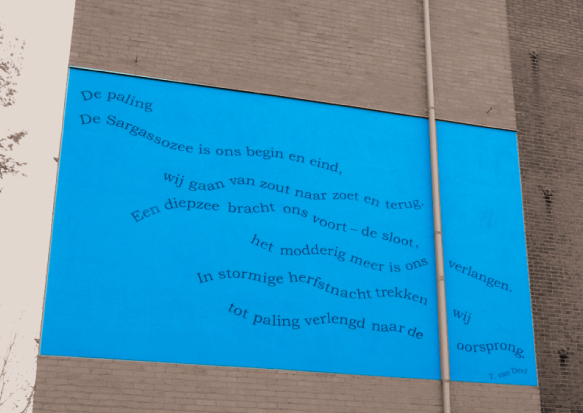 De paling
De Sargassozee is ons begin en eind,
wij gaan van zout naar zoet en terug.
Een diepzee bracht ons voort – de sloot,
het modderig meer is ons verlangen.
In stormige herfstnacht trekken wij
tot paling verlengd naar de oorsprong.